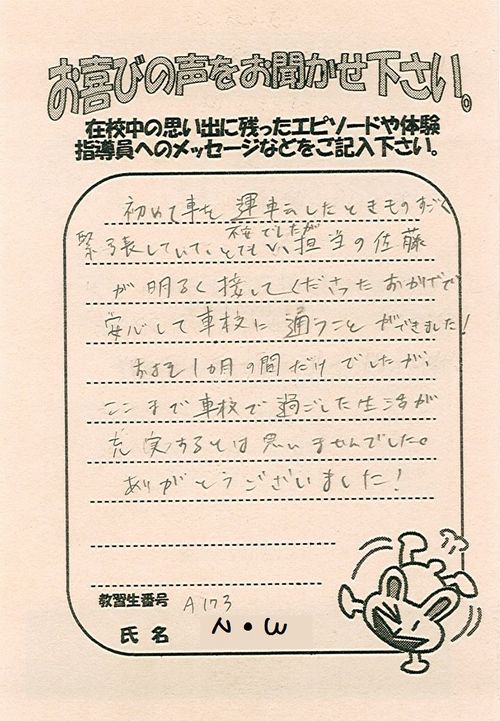 お喜びの声をお聞かせ下さい。
在校中の思い出に残ったエピソードや体験
指導員へのメッセージなどをご記入下さい。
初めて車を運転したときものすごく
緊張していて、とても不安でしたが、担当の佐藤
が明るく接してくださったおかげで
安心して車校に通うことができました!
およそ1カ月の間だけでしたが、
ここまで車校で過ごした生活が
充実するとは思いませんでした。
ありがとうございました!
教習生番号 A173
氏名 N・W